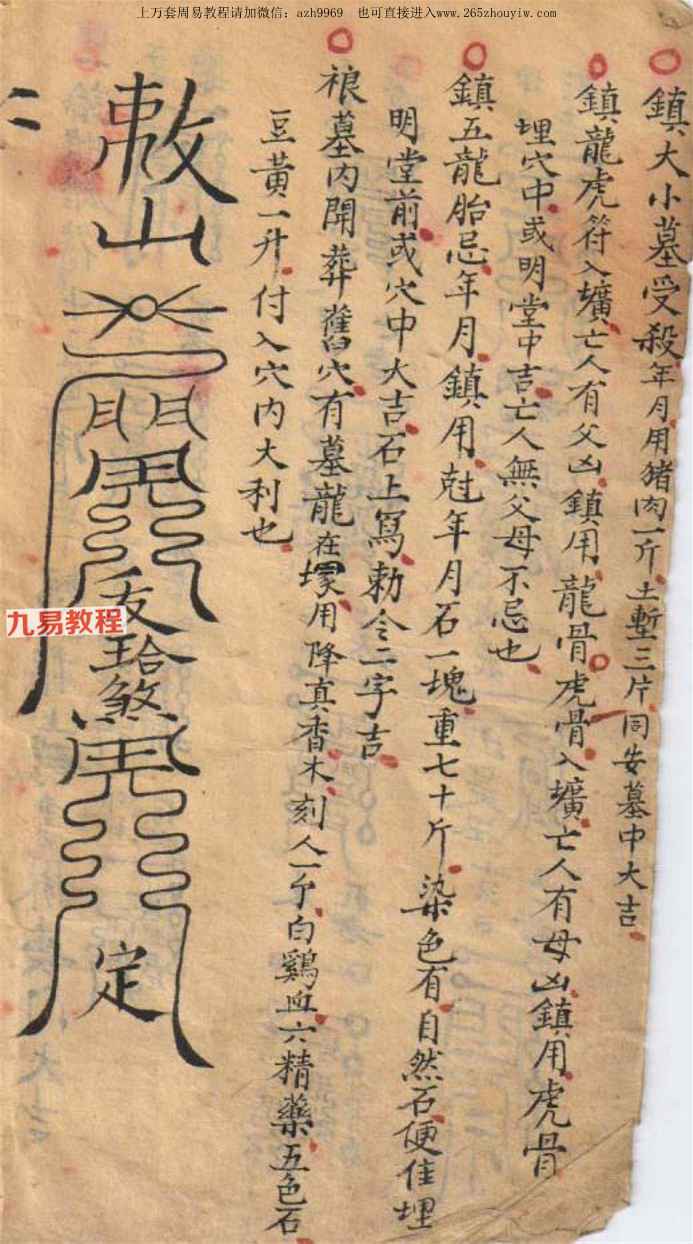 上万套周易教程请加微信：azh9969　也可直接进入www.265zhouyiw.com
鎮大小墓受殺年月用猪肉一斤土墼三片同安墓中大吉
鎮龍虎符入壙亡人有父凶鎮用龍骨虎骨入壙亡人有母凶鎮用虎骨
埋穴中或明堂中吉亡人無父母不忌也
鎮五龍胎忌年月鎮用尅年月石一塊重七十斤染色有自然石便佳埋
明堂前或穴中大吉石上寫勅令二字吉
墓內開葬舊穴有墓龍在塚用降真香木刻人一个白鷄血六精藥五色石
豆黃一升付入穴內大利也
敕山
煞
定
二
九易教程